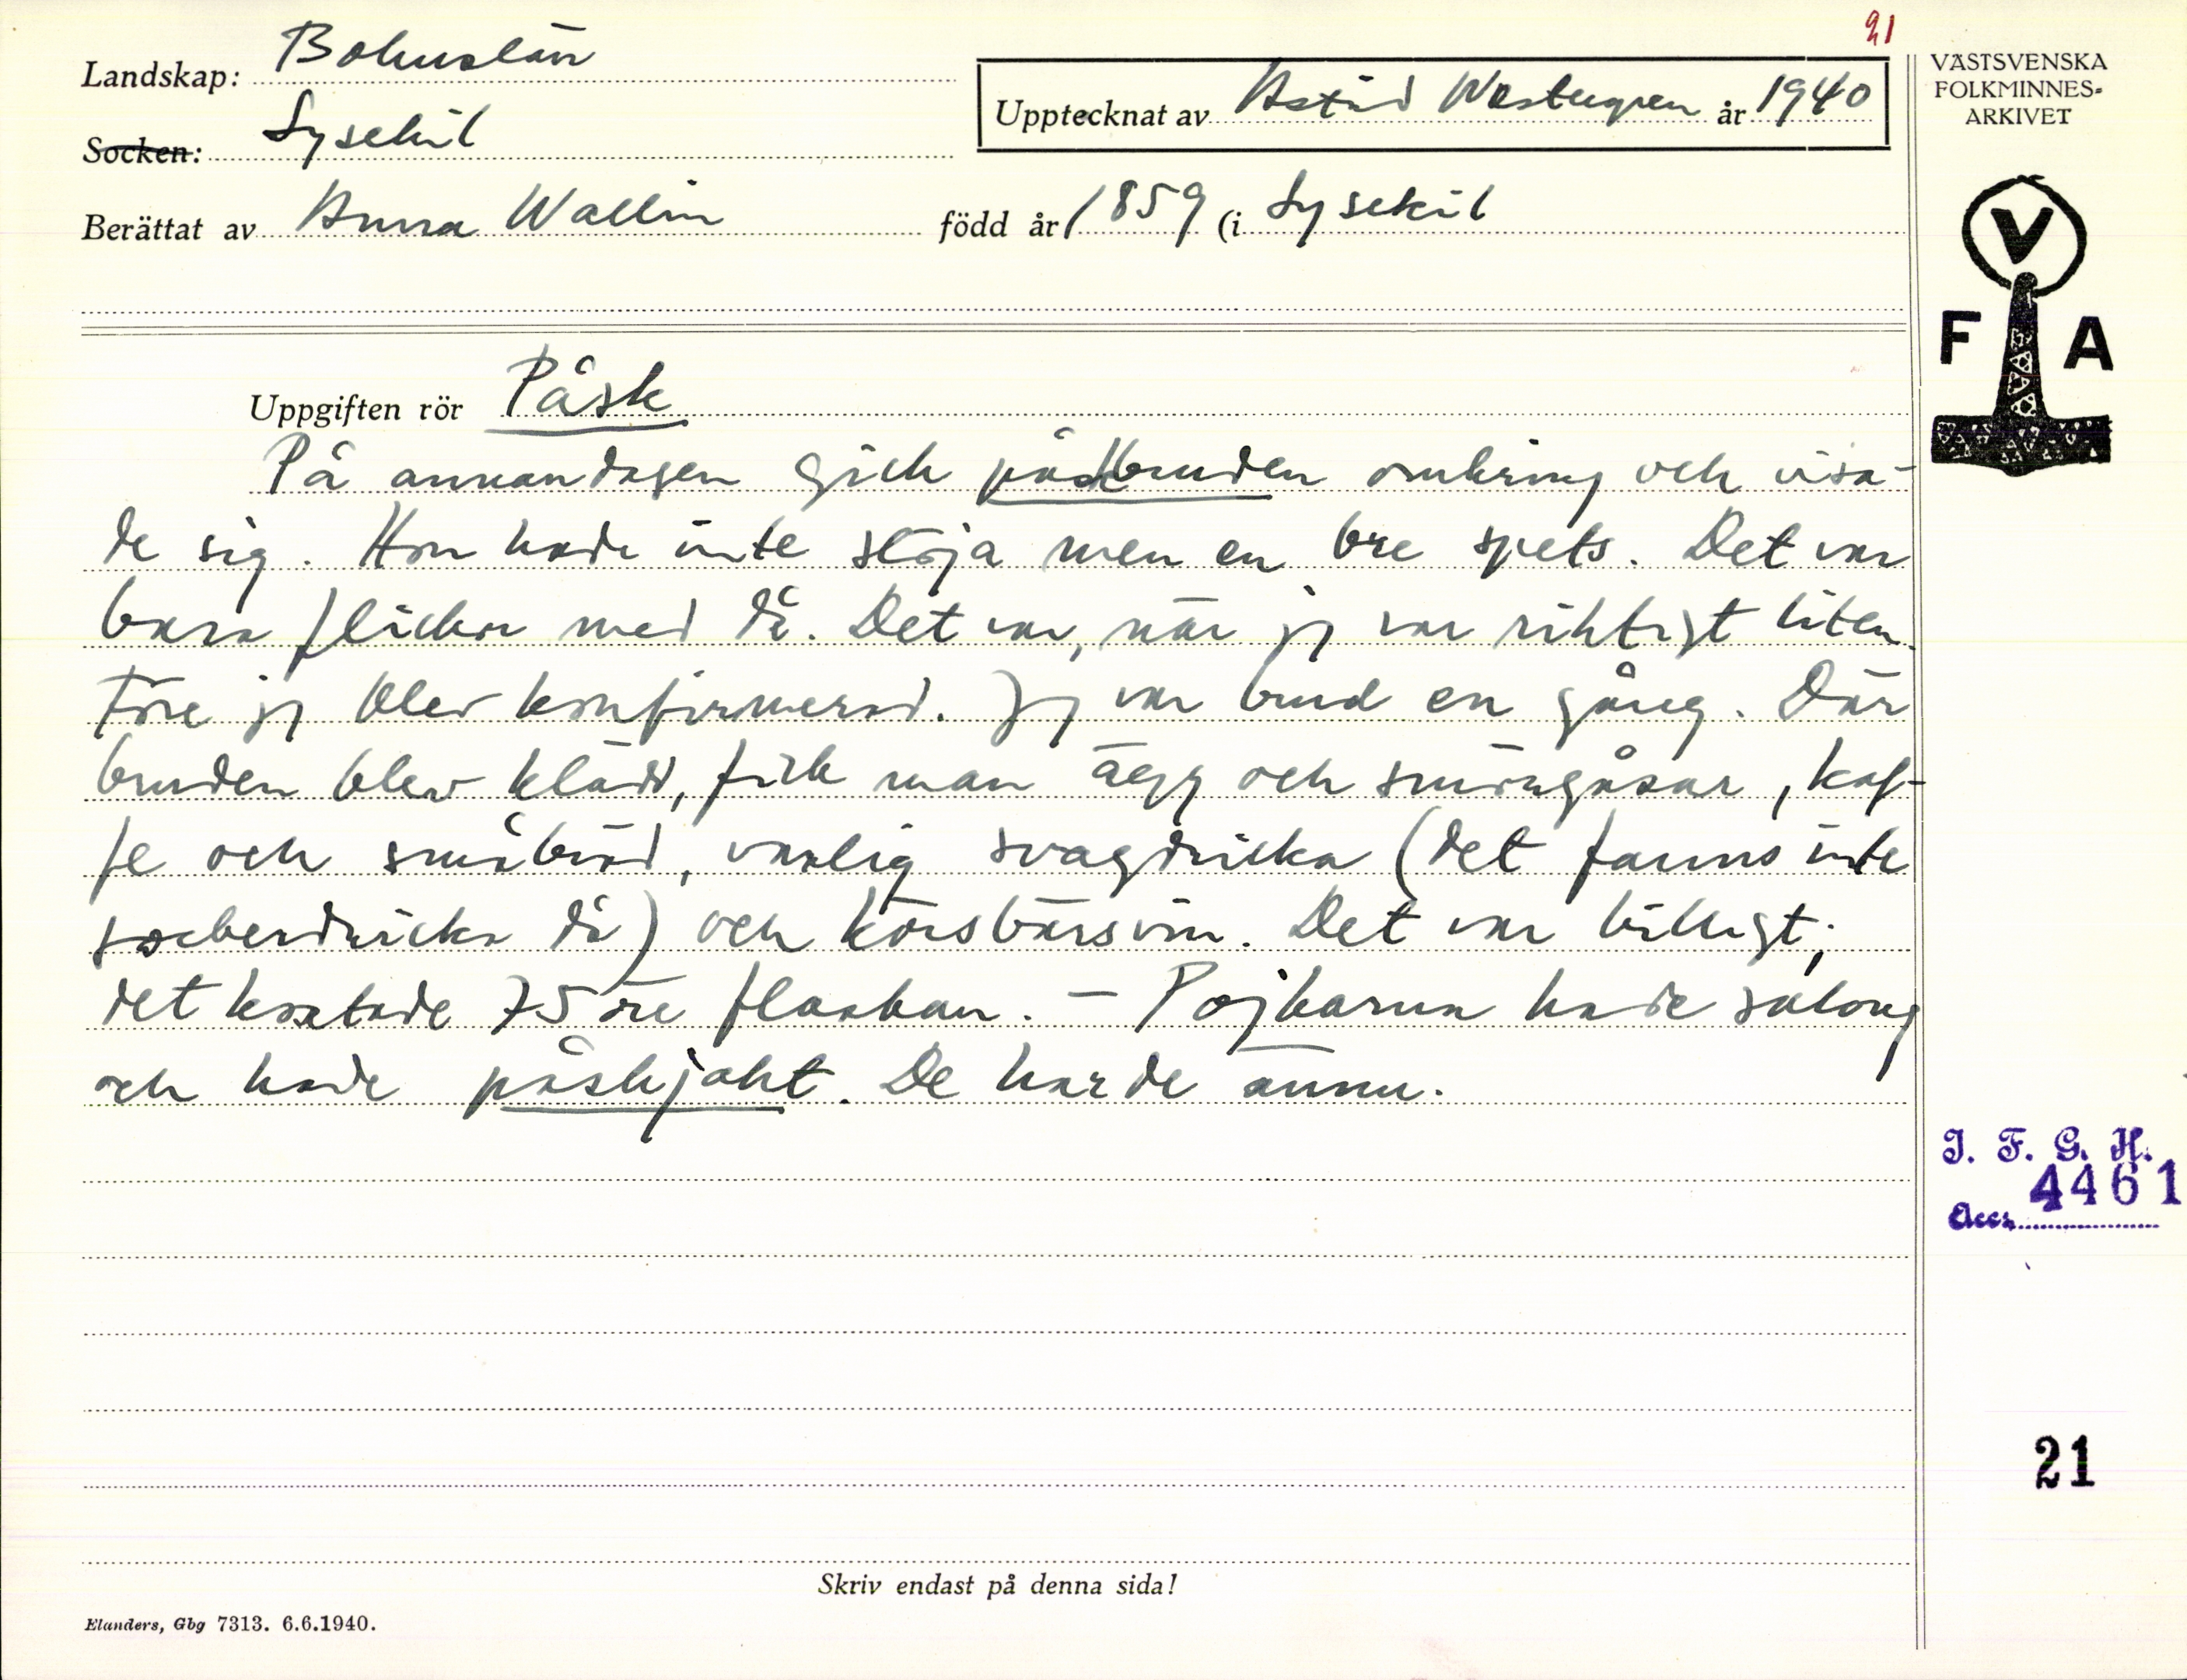 21
Landskap: Bohuslän
Upptecknat av Astrid Westergren år 1940
VÄSTSVENSKA
FOLKMINNES-
ARKIVET
Socken: Lysekil
Berättat av Anna Wallin född år 1859 (i Lysekil
V
F A
Uppgiften rör Påsk
På annandagen gick påskbruden omkring och visa-
de sig. Hon hade inte slöja men en bre spets. Det var
bara flickor med då. Det var, när jg var riktigt liten.
Före jg blev konfirmerad. Jg var brud en gång. Där
bruden blev klädd, fick man ägg och smörgåsar, kaf-
fe och småbröd, vanlig svagdricka (det fanns inte
sockerdricka då) och körsbärsvin. Det var billigt;
det kostade 75 öre flaskan. – Pojkarna hade salong
och hade påskjakt. De har de ännu.
I. F. G. H.
Acc. 4461
21
Skriv endast på denna sida!
Elanders, Gbg 7313. 6.6.1940.